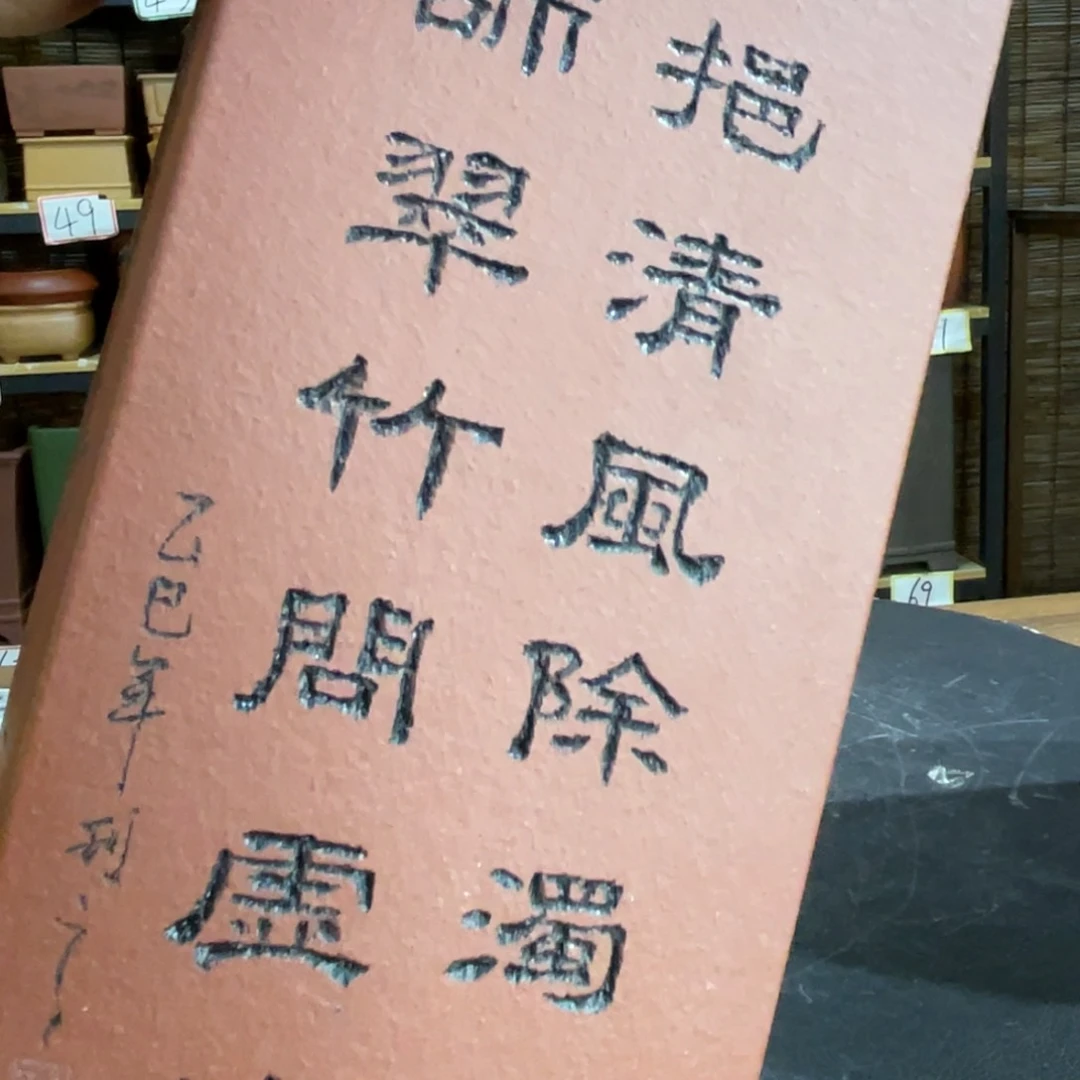 挹清風除濁
師翠竹問虛
乙巳年刊
49
69